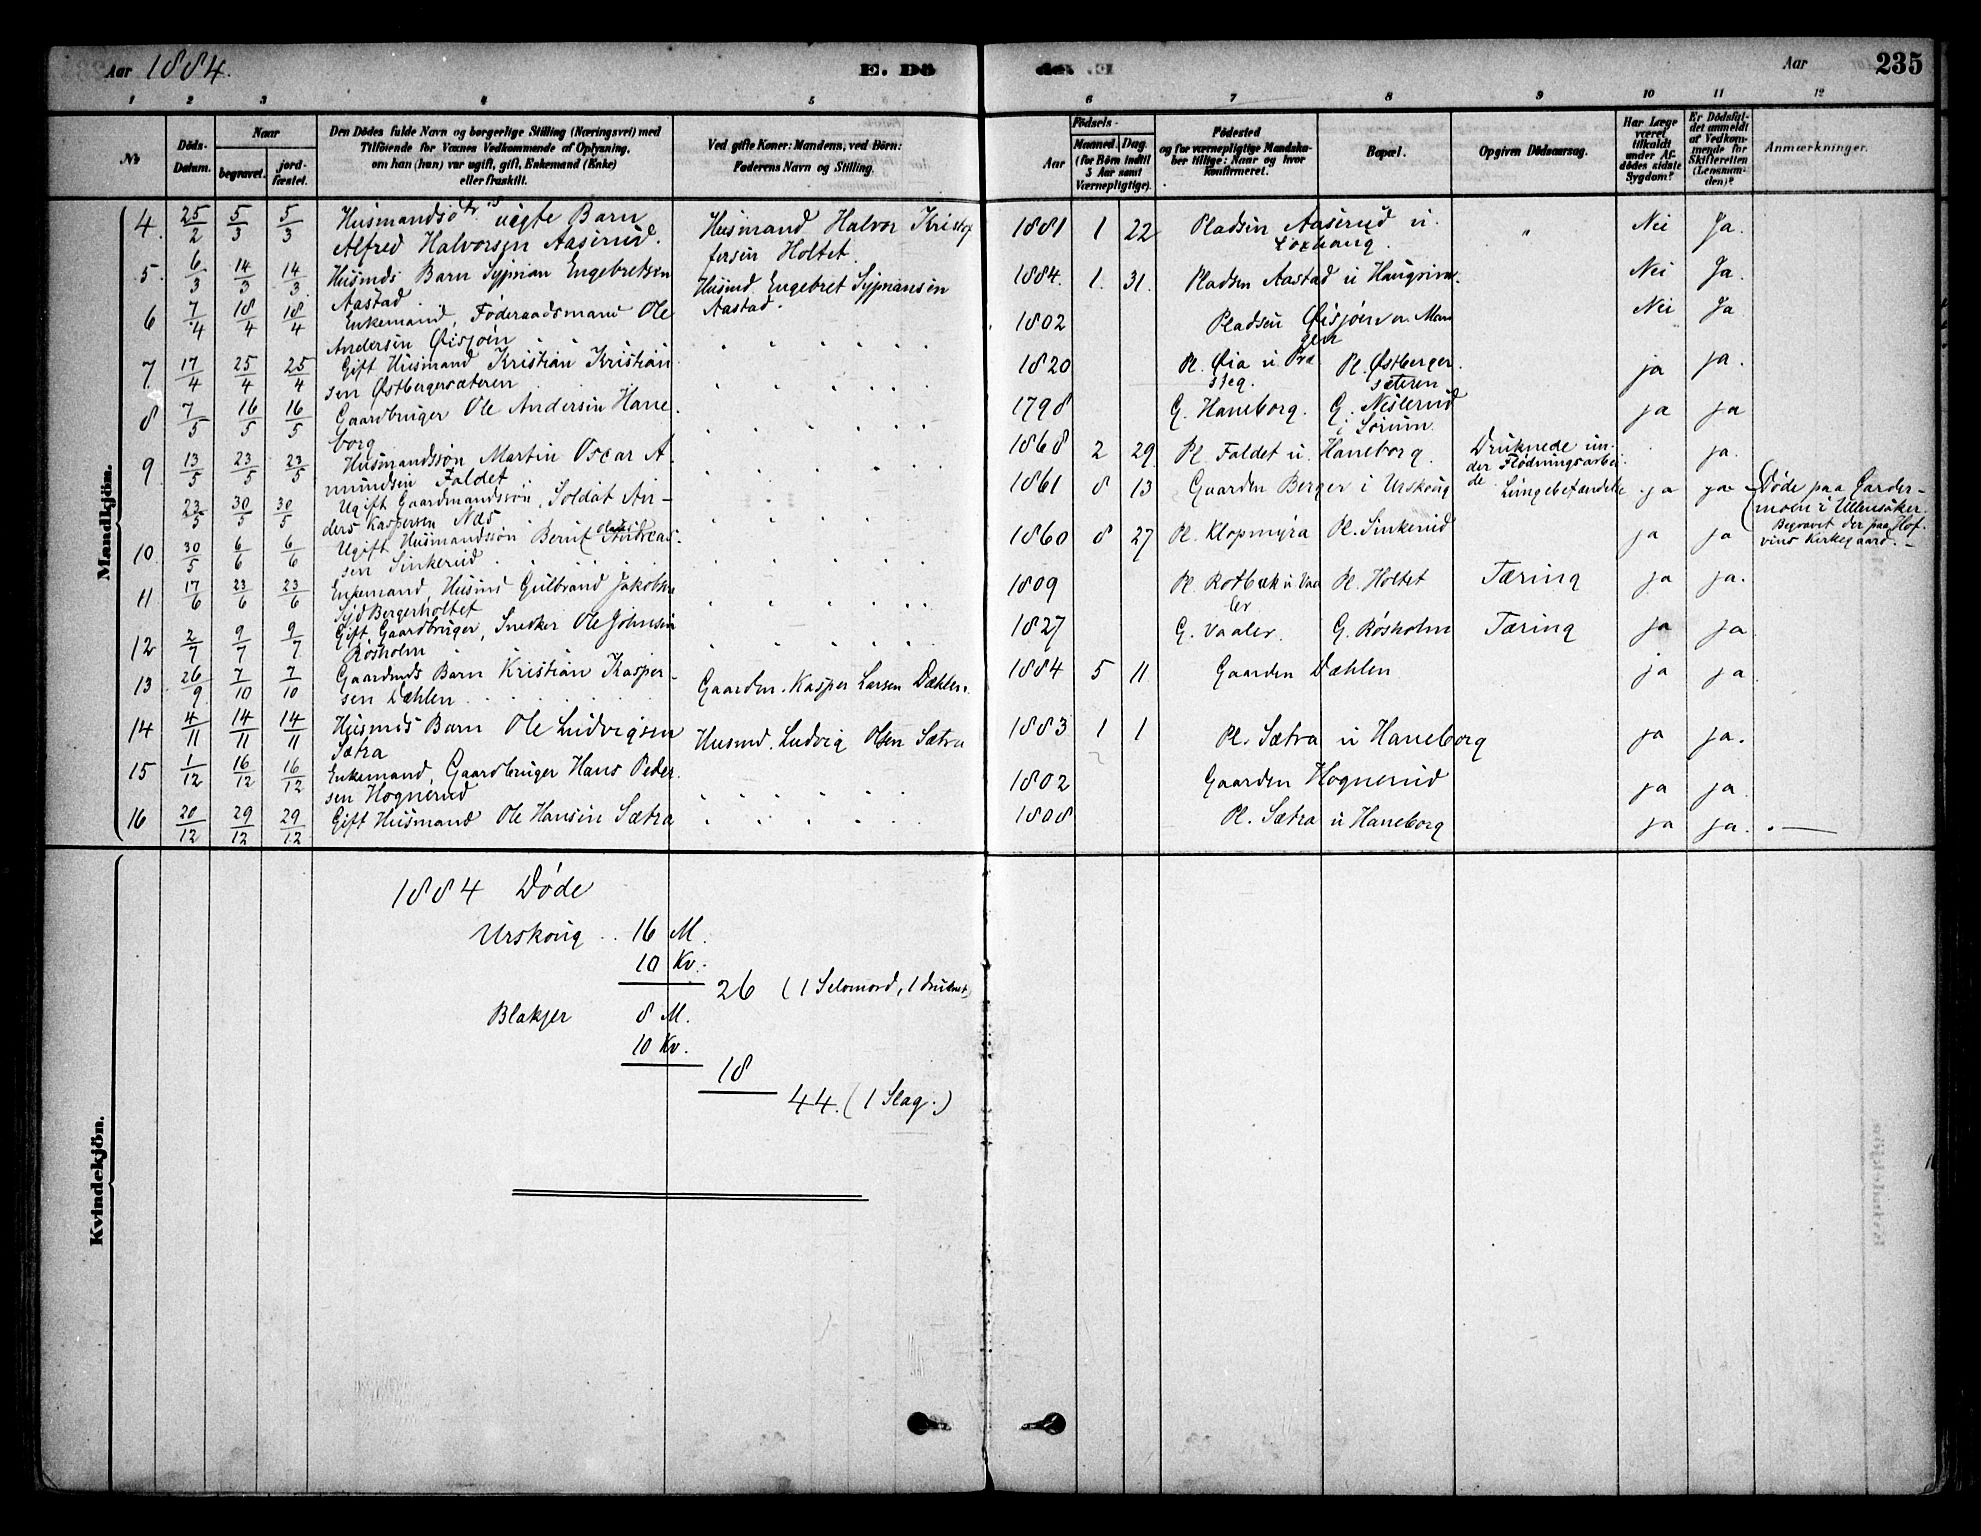 Aar 1884. E. Dö
Aar 235
1 2 3 4 5 6 7 8 9 10 11 12
No
Döds-Datum.
Naar
begravet.
jordfæstet.
Den Dödes fulde Navn og borgerlige Stilling (Næringsvei) med
Tilföiende for Voxnes Vedkommende af Oplysning,
om han (hun) var ugift, gift, Enkemand (Enke)
eller fraskilt.
Ved gifte Koner: Mandens, ved Börn:
Faderens Navn og Stilling.
Födsels-
Aar
Maaned. Dag.
(for Börn indtil
5 Aar samt
Værnepligtige).
Födested
og for værnepligtige Mandskaber tillige: Naar og hvor
konfirmeret.
Bopæl.
Opgiven Dödsaarsag.
Har Læge
været
tilkaldt
under Afdödes sidste
Sygdom?
Er Dödsfaldet anmeldt
af Vedkommende for
Skifteretten
(Lensmanden)?
Anmærkninger.
Mandkjön.
4. 25/2 5/3 5/3 uægte Barn Husmand Halvor Kristof 1881 1 22 Pladsen Aaserud u. " Nei Ja.
Alfred Halvorsen Aaserud. fersen Holtet.
5. 6/3 14/3 14/3 Husmds Barn Sypman Engebretsen Husmd Engebret Sypmansen 1884. 1. 31. Pladsen Aastad u Nei Ja.
Aastad. Aastad.
6 7/4 18/4 18/4 Enkemand, Föderaadsmand Ole 1802 Pladsen Øisjøen Nei Ja
Andersen Øisjøen
7. 17/4 25/4 25/4 Gift Husmand Kristian Kristian 1820 Pl. Øia u Præ Pl. Østberger ja ja.
sen Østbergersæteren steg. sæteren
8 7/5 16/5 16/5 Gaardbruger Ole Andersen Hane 1798 G. Haneborg. G. Neslerud ja ja
borg i Sørum
9 13/5 23/5 23/5 Husmandssøn Martin Oscar A 1868 2 29 Pl. Faldet u. Haneborg. Druknede un- ja.
mundsen Faldet der Flødningsarbei
de
23/5 30/5 30/5 Ugift Gaardmandssøn, Soldat An- 1861 8 13 Gaarden Berger i Urskoug Lungebetændelse ja ja Døde paa Garder-
ders Kaspersen Næs moen i Ullensaker.
Begravet der paa Hof
vins Kirkegaard.
10 30/5 6/6 6/6 Ugift Husmandssøn Bernt Andreas 1860 8 27 Pl. Klopmyra Pl. Sinkerud ja ja
sen Sinkerud
11 17/6 23/6 23/6 Enkemand, Husmd Gulbrand Jakobsen 1809 Pl. Rotbæk u Vaa Pl. Holtet Tæring ja ja.
Syd Bergerholtet ler
12 2/7 9/7 9/7 Gift Gaardbruger, Snedker Ole Johnsen 1827 G. Vaaler. G. Røsholm Tæring ja ja
Røsholm
13 26/9 7/10 7/10 Gaardmds Barn Kristian Kasper- Gaardm. Kasper Larsen Dæhlen. 1884 5 11 Gaarden Dæhlen ja ja
sen Dæhlen
14 4/11 14/11 14/11 Husmds Barn Ole Ludvigsen Husmd. Ludvig Olsen Sætra 1883 1 1 Pl. Sætra u Haneborg ja ja.
Sætra
15 1/12 16/12 16/12 Enkemand, Gaardbruger Hans Peder 1802 Gaarden Hognerud ja ja
sen Hognerud
16 20/12 29/12 29/12 Gift Husmand Ole Hansen Sætra 1808 Pl. Sætra u Haneborg ja ja.
Kvindekjön.
1884 Døde
Urskoug 16 M.
10 Kv.
26 (1 Selvmord, 1 druknet)
Blakjer 8 M.
10 Kv.
18
44. (1 Slag.)